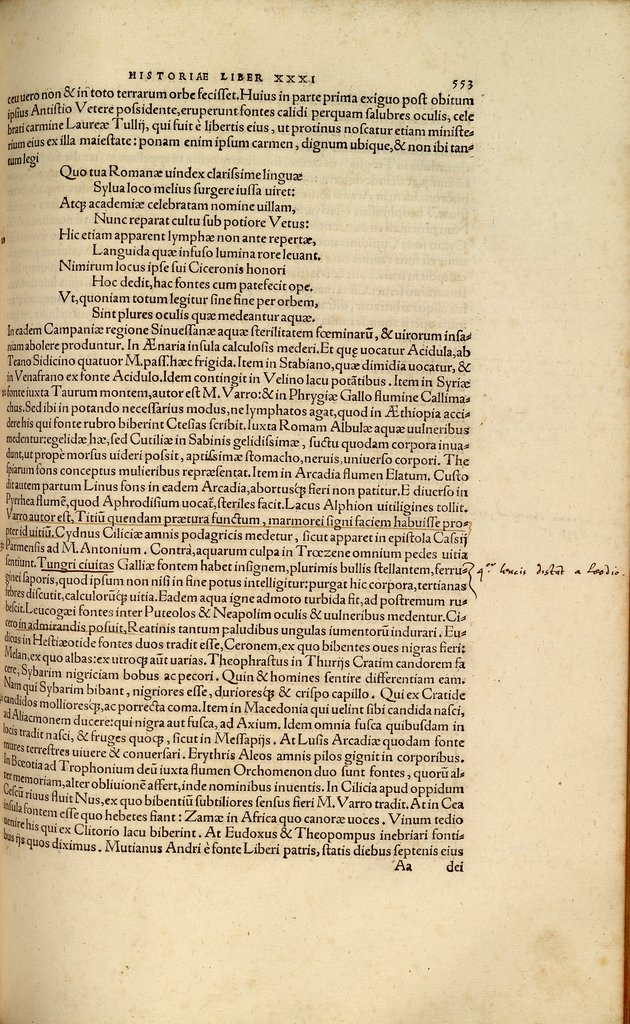 HISTORIAE LIBER XXXI
553
ceu uero non & in toto terrarum orbe feciſſet. Huius in parte prima exiguo poſt obitum
ipſius Antiſtio Vetere poſsidente, eruperunt fontes calidi perquam ſalubres oculis, cele
brati carmine Laureæ Tullij, qui fuit è libertis eius, ut protinus noſcatur etiam miniſte-
rium eius ex illa maieſtate: ponam enim ipſum carmen, dignum ubique, & non ibi tan-
tum legi
Quo tua Romanæ uindex clariſsime linguæ
Sylua loco melius ſurgere iuſſa uiret:
Atq; academiæ celebratam nomine uillam,
Nunc reparat cultu ſub potiore Vetus:
Hic etiam apparent lymphæ non ante repertæ,
Languida quæ infuſo lumina rore leuant.
Nimirum locus ipſe ſui Ciceronis honori
Hoc dedit, hac fontes cum patefecit ope.
Vt, quoniam totum legitur ſine fine per orbem,
Sint plures oculis quæ medeantur aquæ.
In eadem Campaniæ regione Sinueſſanæ aquæ ſterilitatem fœminarū, & uirorum inſa-
niam abolere produntur. In Ænaria inſula calculoſis mederi. Et quę uocatur Acidula, ab
Teano Sidicino quatuor M. paſſ. hæc frigida. Item in Stabiano, quæ dimidia uocatur, &
in Venafrano ex fonte Acidulo. Idem contingit in Velino lacu potātibus. Item in Syriæ
fonte iuxta Taurum montem, autor eſt M. Varro: & in Phrygiæ Gallo flumine Callima-
chus. Sed ibi in potando neceſſarius modus, ne lymphatos agat, quod in Æthiopia acci-
dere his qui fonte rubro biberint Cteſias ſcribit. Iuxta Romam Albulæ aquæ uulneribus
medentur: egelidæ hæ, ſed Cutiliæ in Sabinis gelidiſsimæ, ſuctu quodam corpora inua-
dunt, ut propè morſus uideri poſsit, aptiſsimæ ſtomacho, neruis, uniuerſo corpori. The
ſpiarum fons conceptus mulieribus repræſentat. Item in Arcadia flumen Elatum. Cuſto
dit autem partum Linus fons in eadem Arcadia, abortusq; fieri non patitur. E diuerſo in
Pyrrhea flumē, quod Aphrodiſium uocāt, ſteriles facit. Lacus Alphion uitiligines tollit.
Varro autor eſt, Titiū quendam præturа functum, marmorei ſigni faciem habuiſſe pro-
pter id uitiū. Cydnus Ciliciæ amnis podagricis medetur, ſicut apparet in epiſtola Caſsij
Parmenſis ad M. Antonium. Contrà, aquarum culpa in Trœzene omnium pedes uitia
ſentiunt. Tungri ciuitas Galliæ fontem habet inſignem, plurimis bullis ſtellantem, ferru-
ginei ſaporis, quod ipſum non niſi in fine potus intelligitur: purgat hic corpora, tertianas
febres diſcutit, calculorūq; uitia. Eadem aqua igne admoto turbida fit, ad poſtremum ru-
beſcit. Leucogæi fontes inter Puteolos & Neapolim oculis & uulneribus medentur. Ci-
cero in admirandis poſuit, Reatinis tantum paludibus ungulas iumentorū indurari. Eu-
dicus in Heſtiæotide fontes duos tradit eſſe, Ceronem, ex quo bibentes oues nigras fieri:
Melan, ex quo albas: ex utroq; aūt uarias. Theophraſtus in Thurijs Cratim candorem fa
cere, Sybarim nigriciam bobus ac pecori. Quin & homines ſentire differentiam eam.
Nam qui Sybarim bibant, nigriores eſſe, durioresq; & criſpo capillo. Qui ex Cratide
candidos mollioresq;, ac porrecta coma. Item in Macedonia qui uelint ſibi candida naſci,
ad Aliacmonem ducere: qui nigra aut fuſca, ad Axium. Idem omnia fuſca quibuſdam in
locis tradit naſci, & fruges quoq;, ſicut in Meſſapijs. At Luſis Arcadiæ quodam fonte
mures terreſtres uiuere & conuerſari. Erythris Aleos amnis pilos gignit in corporibus.
In Bœotia ad Trophonium deū iuxta flumen Orchomenon duo ſunt fontes, quorū al-
ter memoriam, alter obliuionē affert, inde nominibus inuentis. In Cilicia apud oppidum
Geſcū riuus fluit Nus, ex quo bibentiū ſubtiliores ſenſus fieri M. Varro tradit. At in Cea
inſula fontem eſſe quo hebetes fiant: Zamæ in Africa quo canoræ uoces. Vinum tedio
uenire his qui ex Clitorio lacu biberint. At Eudoxus & Theopompus inebriari fonti-
bus ijs quos diximus. Mutianus Andri è fonte Liberi patris, ſtatis diebus ſeptenis eius
Aa dei
leucis distat a Leodio.